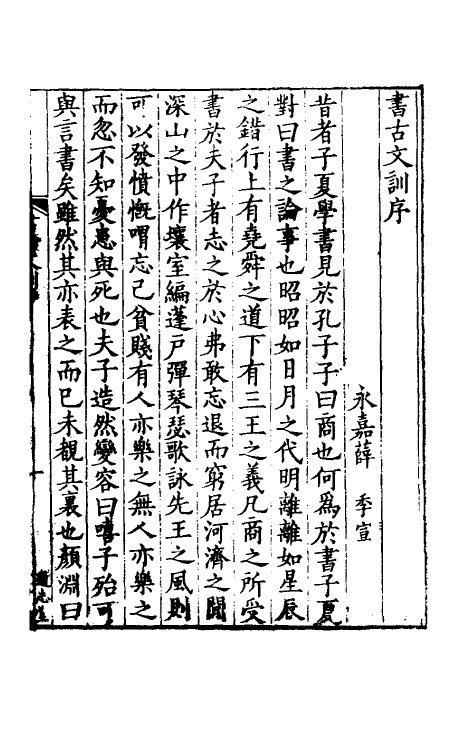 書古文訓序
永嘉薛 季宣
昔者子夏學書見於孔子子曰商也何爲於書子夏
對曰書之論事也昭昭如日月之代明離離如星辰
之錯行上有堯舜之道下有三王之義凡商之所受
書於夫子者志之於心弗敢忘退而窮居河濟之閒
深山之中作壤室編蓬戶彈琴瑟歌詠先王之風則
可以發憤慨喟忘己貧賤有人亦樂之無人亦樂之
而忽不知憂患與死也夫子造然變容曰嘻子殆可
與言書矣雖然其亦表之而已未覩其裏也顏淵曰
通志堂